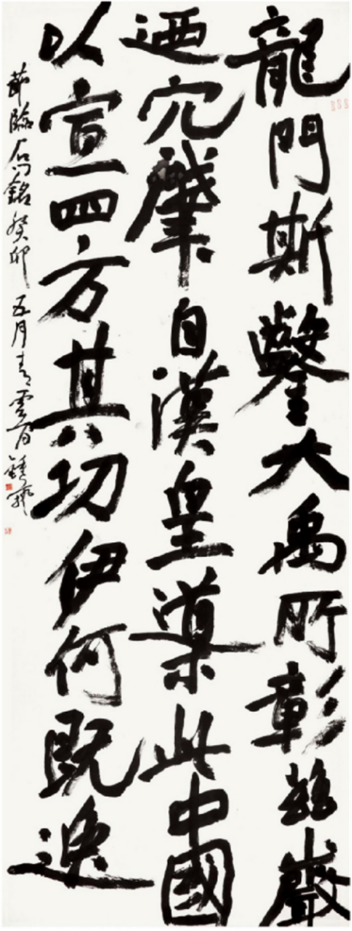 龍門斯鑿大禹所彰茲巖
迺穴肇自漢皇導此中國
以宣四方其功伊何既逸
節臨石門銘癸卯五月